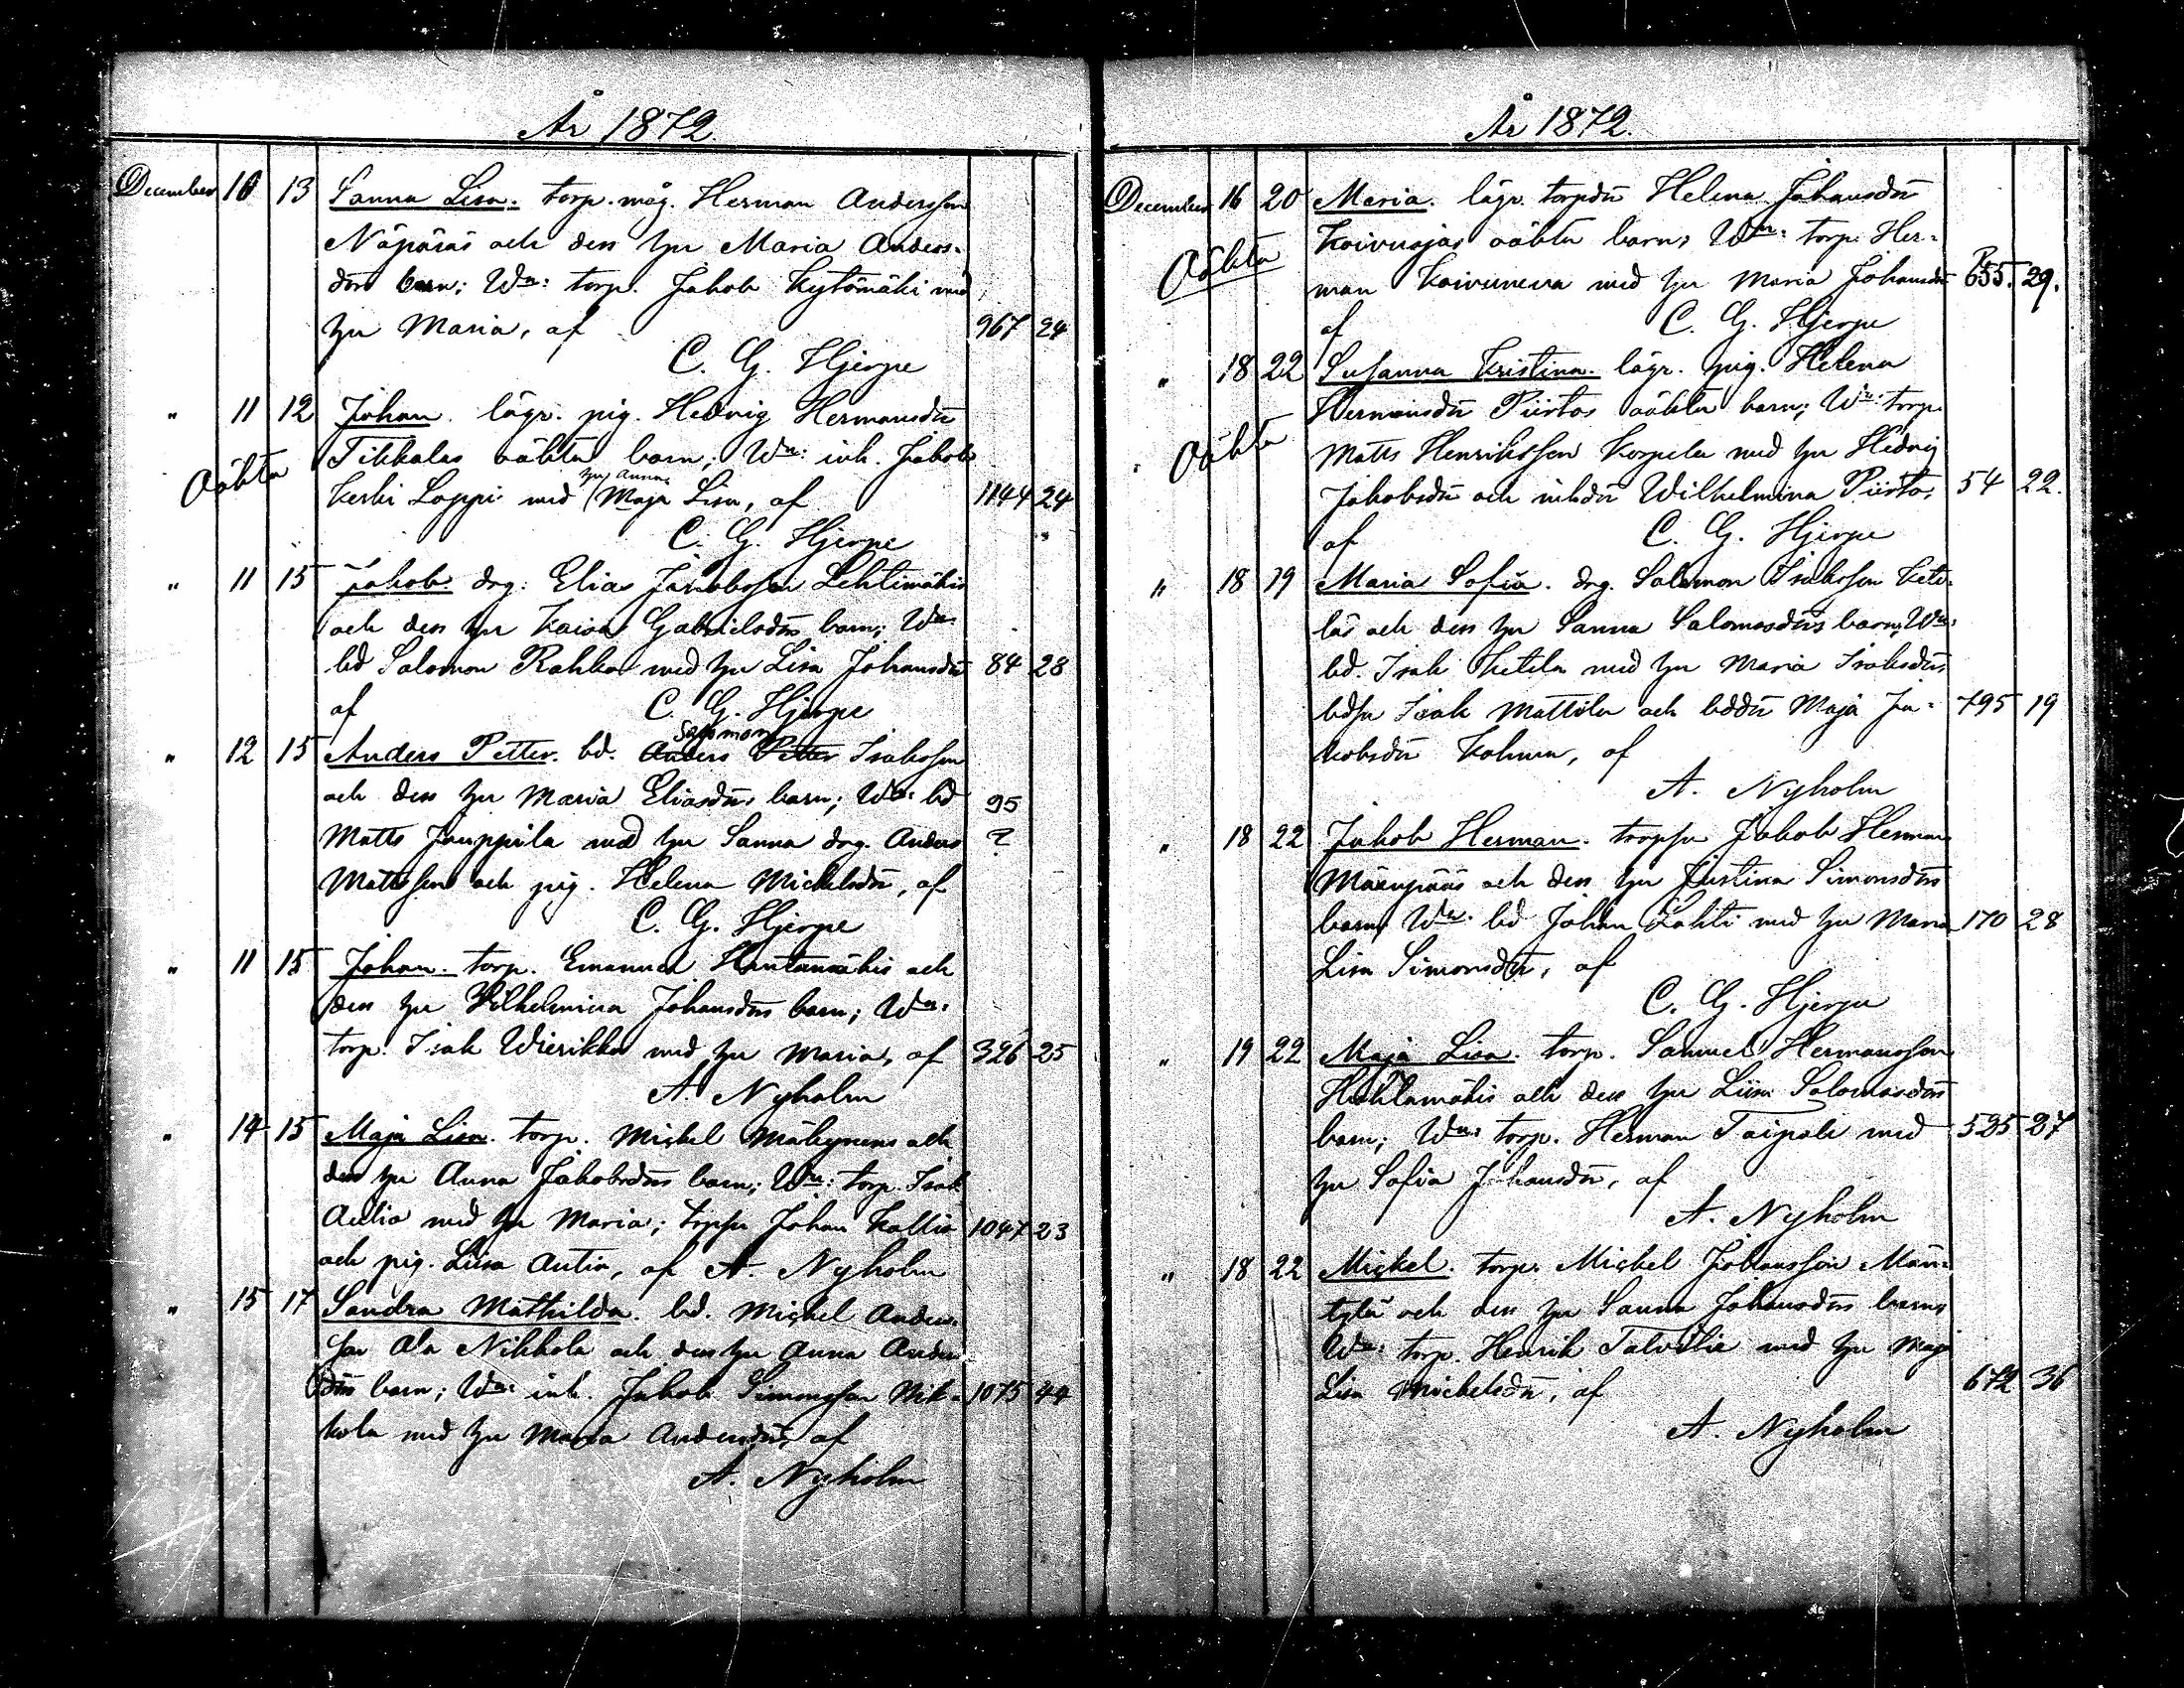 År 1872.
December 10 13 Sanna Lisa. torp. måg. Herman Andersson
Näpäräs och dess hu Maria Anders-
dörs barn; Wn: torp. Jakob Kytömäki med
hu Maria, af 967 24
C. G. Hjerpe
" 11 12 Johan. lägr. pig. Hedvig Hermansdr
Tikkalas oäkta barn; Wn: inh. Jakob
hu Anna
Oäkta
Keski Loppi med Maja Lisa, af 1144 24
C. G. Hjerpe
" 11 15 Jakob. drg. Elias Jakobsson Lehtimäkis
och dess hu Kaisa Gabrielsdrs barn; Wn:
bd Salomon Rahko med hu Lisa Johansdr 84 28
af C. G. Hjerpe
Salomon
" 12 15 Anders Petter. bd. Anders Petter Isaksson
och dess hu Maria Eliasdrs barn; Wn: bd 95
Matts Jauppila med hu Sanna drg. Anders ?
Mattsson och pig. Helena Mickelsdr, af
C. G. Hjerpe
" 11 15 Johan. torp. Emanuel Hautamäkis och
dess hu Wilhelmina Johansdrs barn; Wn:
torp. Isak Wierikko med hu Maria, af 326 25
A. Nyholm
" 14 15 Maja Lisa. torp. Mickel Mäkynens och
dess hu Anna Jakobsdrs barn; Wn: torp. Isak
Autio med hu Maria; torpsn Johan Kallio 1047 23
och pig. Lisa Autio, af A. Nyholm
" 15 17 Sandra Mathilda. bd. Mickel Anders-
son Ala Nikkola och dess hu Anna Anders-
drs barn; Wn: inh. Jakob Simonsson Nik- 1075 44
kola med hu Maria Andersdr, af
A. Nyholm
År 1872.
December 16 20 Maria. lägr. torpdr Helena Johansdr
Koivusjas oäkta barn; Wn: torp. Her-
Oäkta
man Koivuneva med hu Maria Johansdr 655. 29.
af C. G. Hjerpe
" 18 22 Susanna Kristina. lägr. pig. Helena
Hermansdr Piirtos oäkta barn; Wn: torp.
Oäkta
Matts Henriksson Korpela med hu Hedvig
Jakobsdr och inhdr Wilhelmina Piirto, 54 22.
af C. G. Hjerpe
" 18 19 Maria Sofia. drg. Salomon Isaksson Kete-
läs och dess hu Sanna Salomosdrs barn; Wn:
bd. Isak Ketela med hu Maria Isaksdr,
bdsn Isak Mattila och bddr Maja Ja- 795 19
kobsdr Kohma, af
A. Nyholm
" 18 22 Jakob Herman. torpsn Jakob Herman
Mäenpääs och dess hu Justina Simonsdrs
barn; Wn: bd Johan Lahti med hu Maria 170 28
Lisa Simonsdr, af
C. G. Hjerpe
" 19 22 Maja Lisa. torp. Samuel Hermansson
Huhtamäkis och dess hu Liisa Salomosdrs
barn; Wn: torp. Herman Taipale med 535 27
hu Sofia Johansdr, af
A. Nyholm
" 18 22 Mickel. torp. Mickel Johansson Män-
tylä och dess hu Sanna Johansdrs barn;
Wn: torp. Henrik Talvitie med hu Maja
Lisa Mickelsdr, af 672 36
A. Nyholm